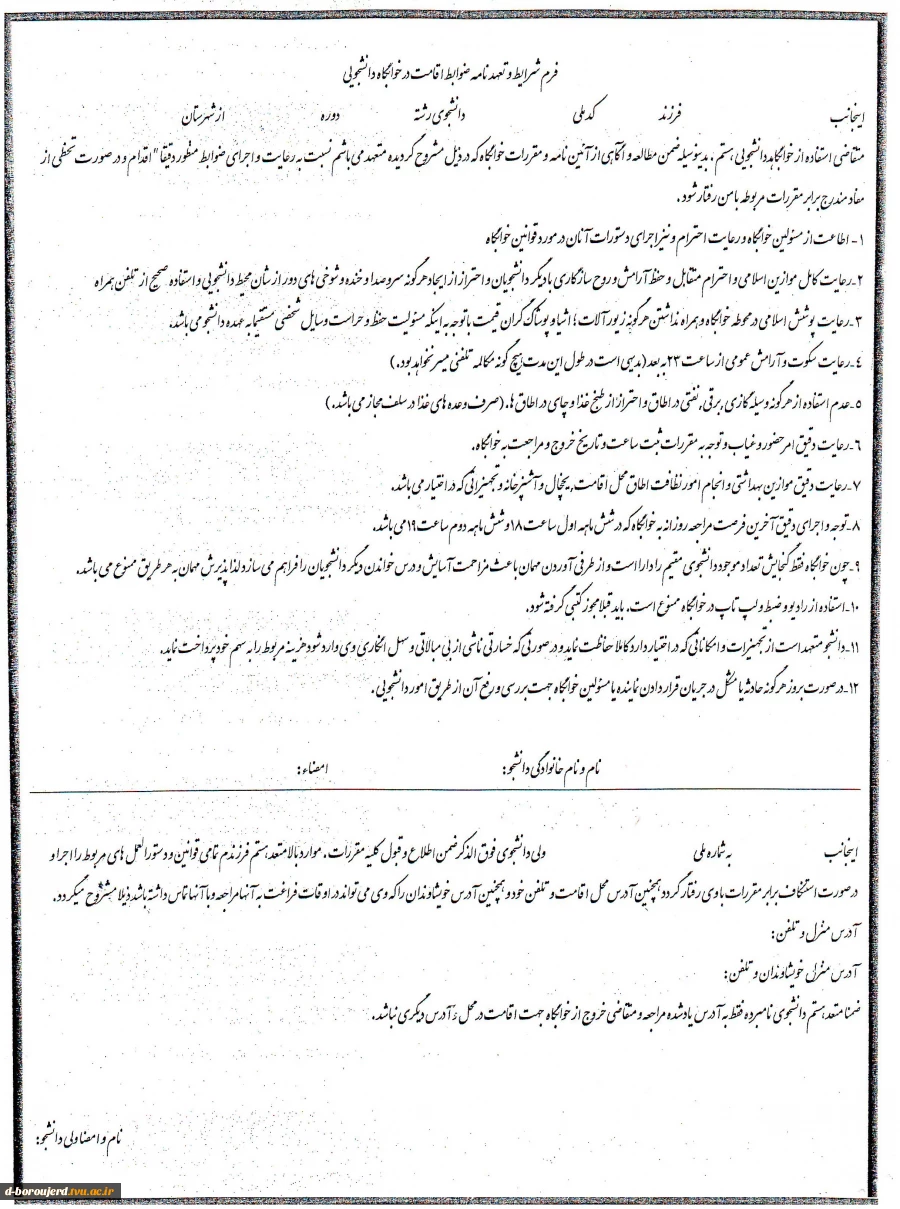 فرم شرایط و تعهد نامه ضوابط اقامت در خوابگاه دانشجویی
اینجانب فرزند کدملی دانشجوی رشته دوره از شهرستان
متقاضی استفاده از خوابگاهد دانشجویی هستم . بدینوسیله ضمن مطالعه و آگاهی از آئین نامه و مقررات خوابگاه که در ذیل مشروح گردیده متعهد می باشم نسبت به رعایت و اجرای ضوابط منظور دقیقا" اقدام و در صورت تخطی از
مفاد مندرج برابر مقررات مربوطه با من رفتار شود .
۱- اطاعت از مسئولین خوابگاه و رعایت احترام و نیز اجرای دستورات آنان در مورد قوانین خوابگاه
۲-رعایت کامل موازین اسلامی و احترام متقابل و حفظ آرامش و روح سازگاری با دیگر دانشجویان و احتراز از ایجاد هرگونه سر و صدا و خنده و شوخی های دور از شأن محیط دانشجویی و استفاده صحیح از تلفن همراه
۳-رعایت پوشش اسلامی در محوطه خوابگاه و همراه نداشتن هرگونه زیورآلات ؛ اشیا و پوشاک گران قیمت با توجه به اینکه مسئولیت حفظ و حراست وسایل شخصی مستقیما به عهده دانشجو می باشد.
۴-رعایت سکوت و آرامش عمومی از ساعت ۲۳ به بعد (بدیهی است در طول این مدت هیچ گونه مکالمه تلفنی میسر نخواهد بود.)
۵-عدم استفاده از هرگونه وسیله گازی ,برقی, نفتی در اطاق و احتراز از طبخ غذا و چای در اطاق ها. (صرف وعده های غذا در سلف مجاز می باشد.)
۶-رعایت دقیق امر حضور و غیاب و توجه به مقررات ثبت ساعت و تاریخ خروج و مراجعت به خوابگاه.
۷-رعایت دقیق موازین بهداشتی و انجام امور نظافت اطاق محل اقامت, یخچال و آشپزخانه و تجهیزاتی که در اختیار می باشد.
۸-توجه و اجرای دقیق آخرین فرصت مراجعه روزانه به خوابگاه که در شش ماهه اول ساعت ۱۸ و شش ماهه دوم ساعت ۱۹ می باشد.
۹-چون خوابگاه فقط گنجایش تعداد موجود دانشجوی مقیم را دارا است و از طرفی آوردن مهمان باعث مزاحمت آسایش و درس خواندن دیگر دانشجویان را فراهم می سازد لذا پذیرش مهمان به هر طریق ممنوع می باشد.
۱۰-استفاده از رادیو و ضبط و لپ تاپ در خوابگاه ممنوع است. باید قبلا مجوز کتبی گرفته شود.
۱۱-دانشجو متعهد است از تجهیزات و امکاناتی که در اختیار دارد کاملا حفاظت نماید و در صورتی که خسارتی ناشی از بی مبالاتی و سهل انگاری وی وارد شود هزینه مربوط را به سهم خود پرداخت نماید.
۱۲-در صورت بروز هرگونه حادثه یا مشکل در جریان قرار دادن نماینده یا مسئولین خوابگاه جهت بررسی و رفع آن از طریق امور دانشجویی.
نام و نام خانوادگی دانشجو: امضاء:
اینجانب به شماره ملی ولی دانشجوی فوق الذکر ضمن اطلاع و قبول کلیه مقررات. موارد بالا متعهد هستم فرزندم تمامی قوانین و دستورالعمل های مربوط را اجرا و
در صورت استنکاف برابر مقررات با وی رفتار گردد همچنین آدرس محل اقامت و تلفن خود و همچنین آدرس خویشاوندان را که وی می تواند در اوقات فراغت به آنها مراجعه و با آنها تماس داشته باشد ذیلا مشروح میگردد.
آدرس منزل و تلفن:
آدرس منزل خویشاوندان و تلفن:
ضمنا متعهد هستم دانشجوی نامبرده فقط به آدرس یاد شده مراجعه و متقاضی خروج از خوابگاه جهت اقامت در محل و آدرس دیگری نباشد.
نام و امضا ولی دانشجو:
d-boroujerd.tvu.ac.ir